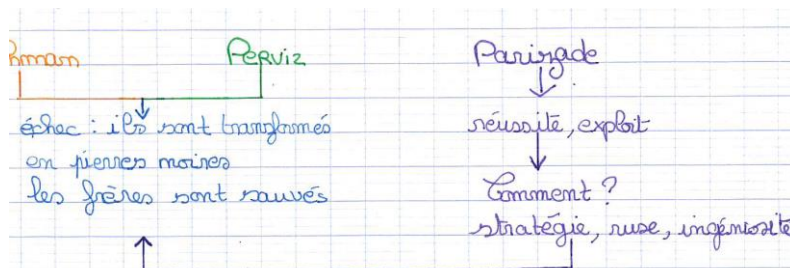 hman Perviz Parizade
échec : ils sont transformés
en pierres noires
les frères sont sauvés
réussite, exploit
Comment ?
stratégie, ruse, ingéniosité